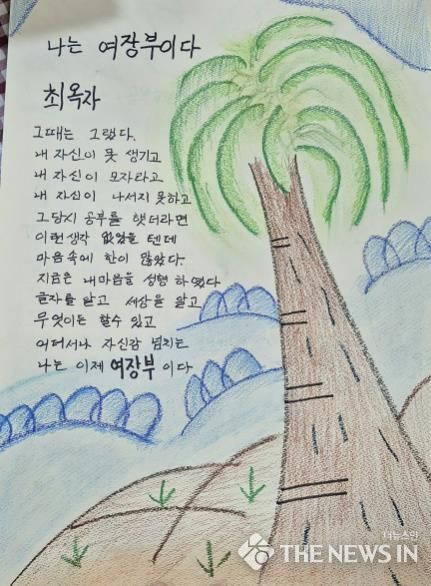 나는 여장부이다
최옥자
그때는 그랬다.
내 자신이 못 생기고
내 자신이 모자라고
내 자신이 나서지 못하고
그당시 공부를 햇더라면
이런생각 없었을 텐데
마음속에 한이 많았다.
지금은 내마음을 성형 하였다
글자를 알고 세상을 알고
무엇이든 할수 있고
어디서나 자신감 넘치는
나는 이제 여장부 이다
더뉴스인
THE NEWS IN